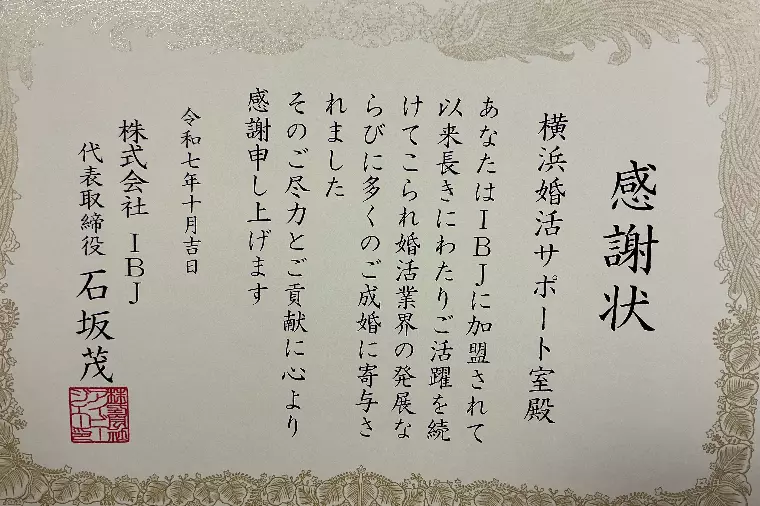 感謝状
横浜婚活サポート室殿
あなたはIBJに加盟されて
以来長きにわたりご活躍を続
けてこられ婚活業界の発展な
らびに多くのご成婚に寄与さ
れました
そのご尽力とご貢献に心より
感謝申し上げます
令和七年十月吉日
株式会社 IBJ
代表取締役 石坂茂